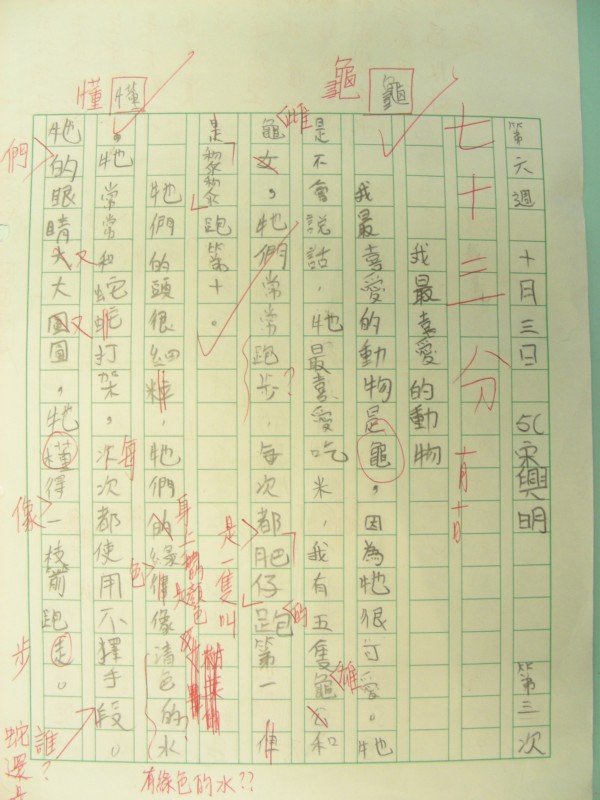 第六週 十月三日 5C 宋興明 第三次
七十三分 十月十日
我最喜愛的動物
龜 龜
我最喜愛的動物是龜,因為牠很可愛。牠
是不會說話,牠最喜愛吃米,我有五隻龜公和
雄
龜女,牠們常常跑步,每次都肥仔跑第一
雌
?
是一隻叫
的
是黎黎跑第十。
牠們的頭很細粒,牠們的綠 像清色的水
身上的顏色
有綠色的水??
懂
。牠常常和蛇打架,次次都使用不擇手段。
每
色
牠的眼睛大大圓圓,牠 得一枝箭跑走。
們
像
步
誰?
蛇還是